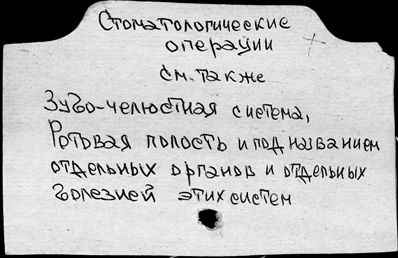 Стоматологические
операции
см. также
Зубо-челюстная система,
Ротовая полость и под названием
отдельных органов и отдельных
болезней этих систем